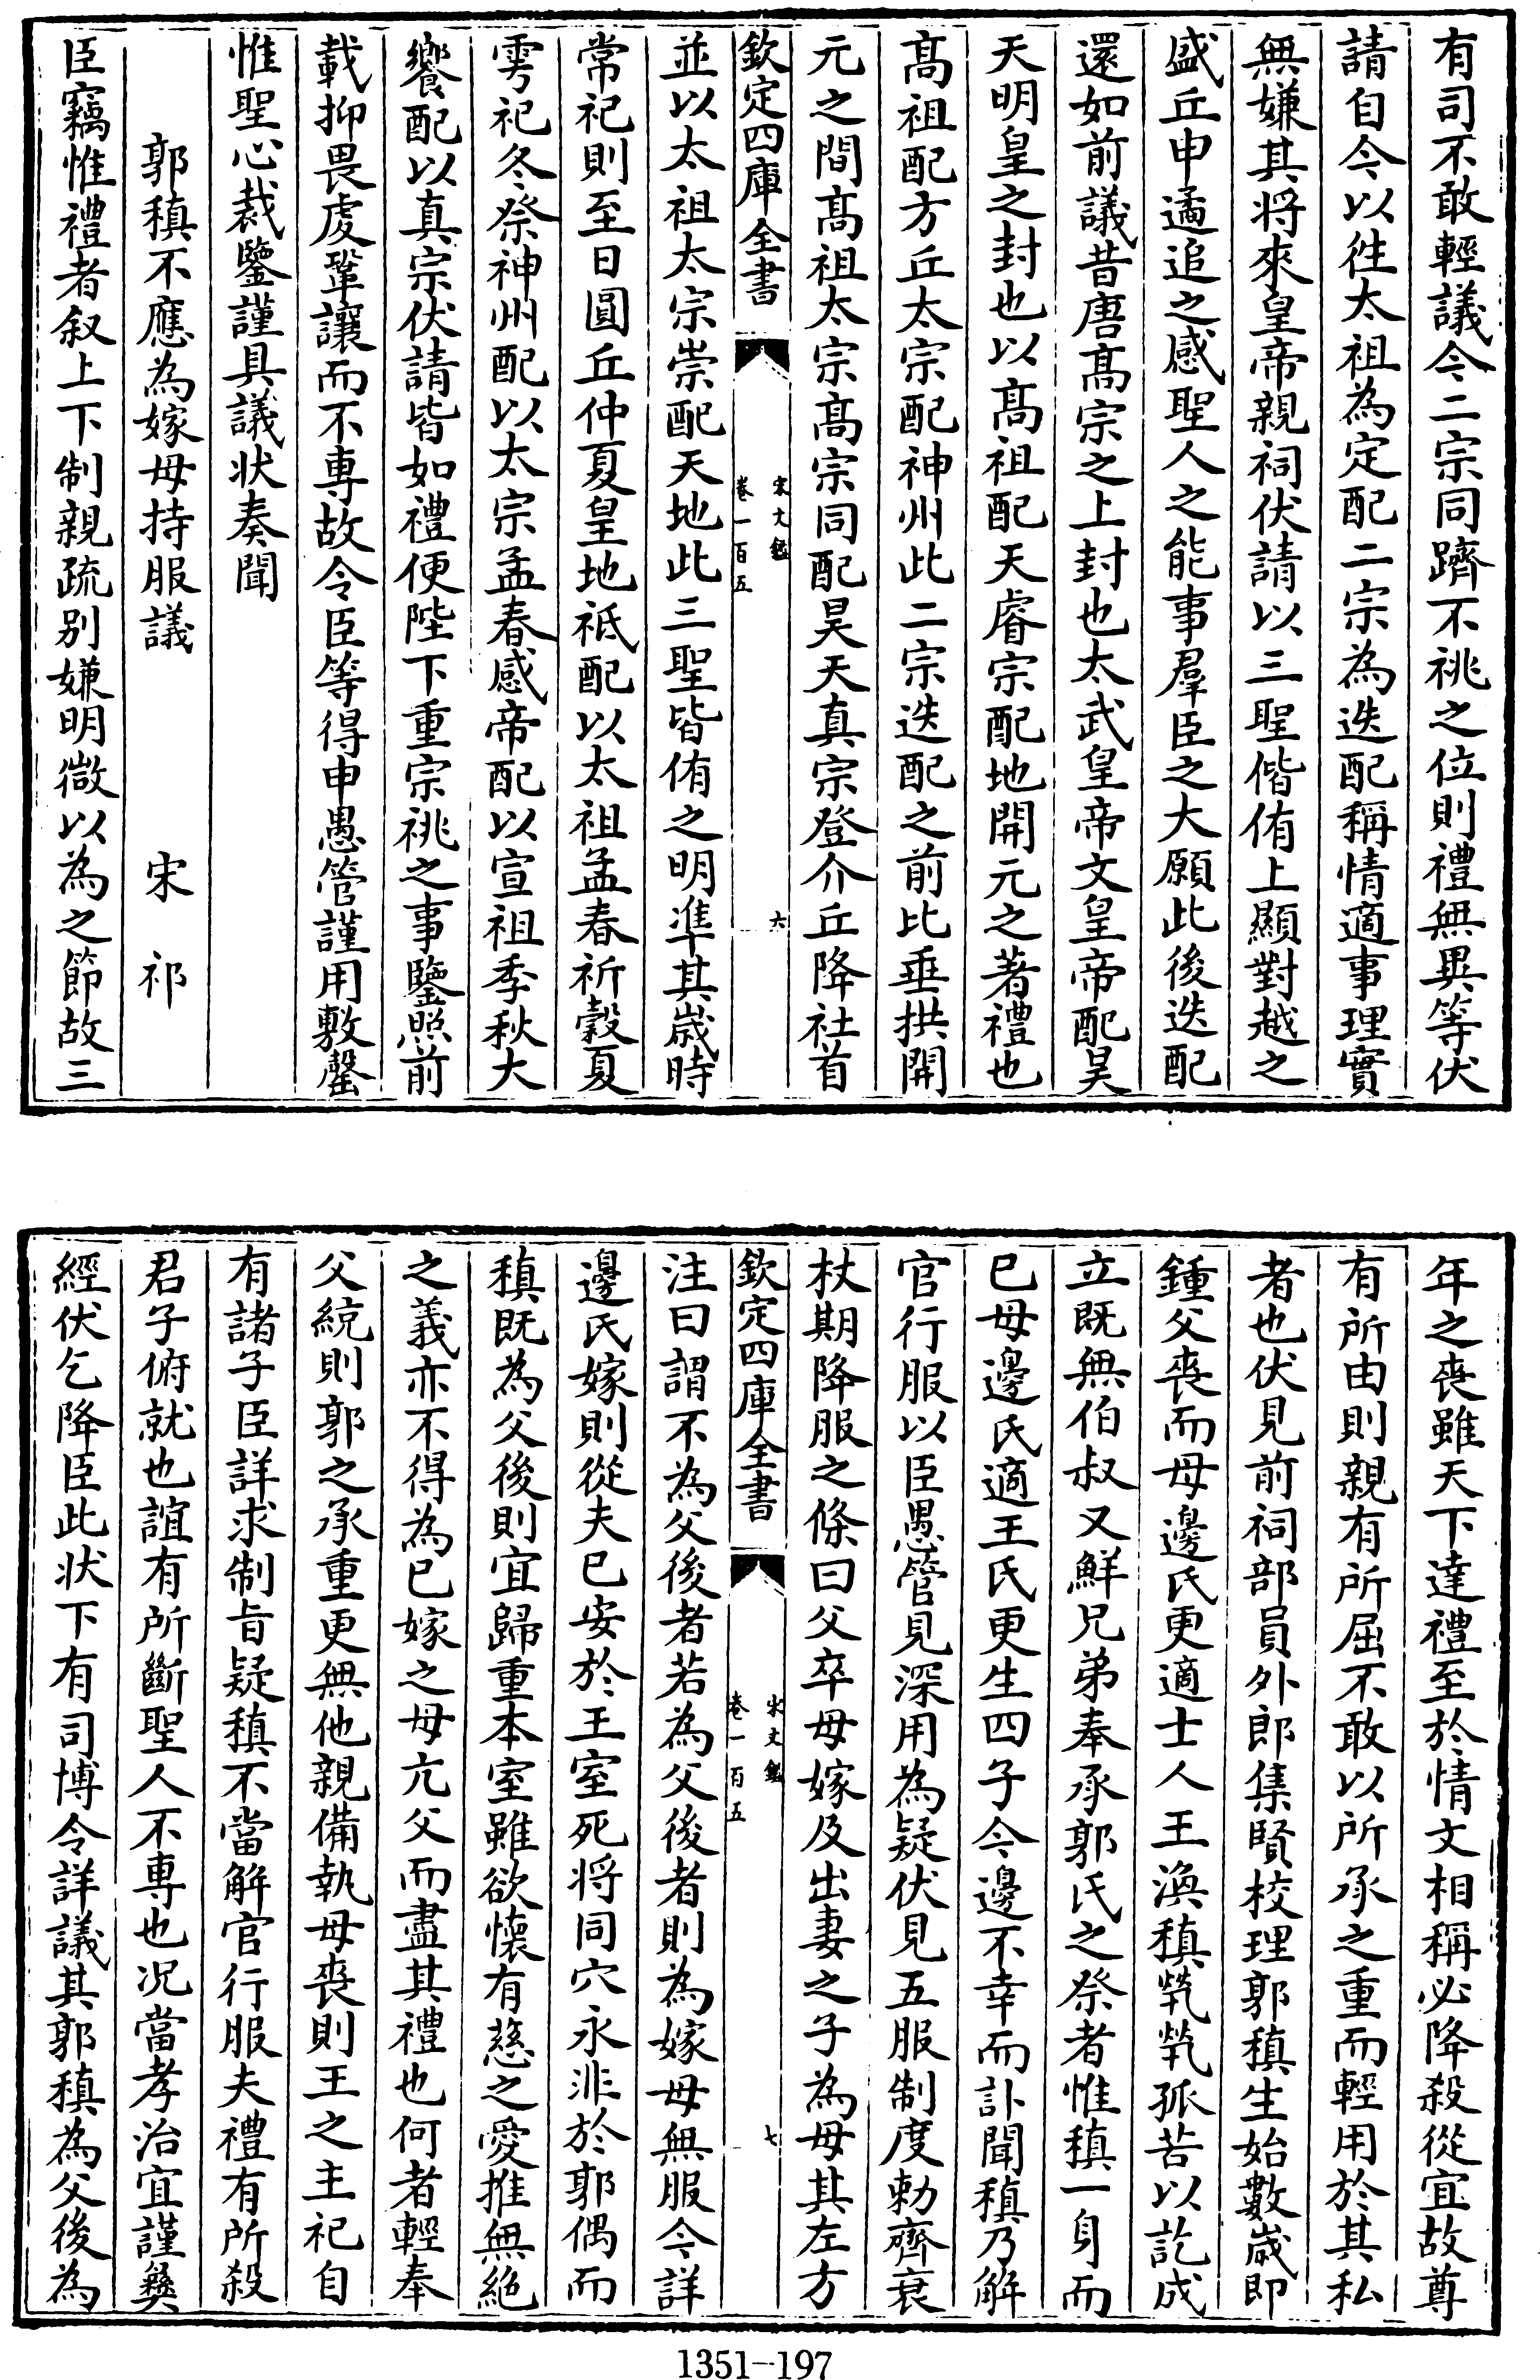 有司不敢輕議令二宗同躋不祧之位則禮無異等伏
請自今以徃太祖為定配二宗為迭配稱情適事理實
無嫌其将來皇帝親祠伏請以三聖偕侑上顯對越之
盛丘申遹追之感聖人之能事羣臣之大願此後迭配
還如前議昔唐髙宗之上封也太武皇帝文皇帝配昊
天明皇之封也以髙祖配天睿宗配地開元之著禮也
髙祖配方丘太宗配神州此二宗迭配之前比垂拱開
元之間髙祖太宗髙宗同配昊天真宗登介丘降社首
欽定四庫全書
宋文鑑
卷一百五
六
並以太祖太宗崇配天地此三聖皆侑之明凖其嵗時
常祀則至日圓丘仲夏皇地祇配以太祖孟春祈穀夏
雩祀冬祭神州配以太宗孟春感帝配以宣祖季秋大
饗配以真宗伏請皆如禮便陛下重宗祧之事鑒照前
載抑畏虔鞏讓而不専故令臣等得申愚管謹用敷罄
惟聖心裁鑒謹具議状奏聞
郭稹不應為嫁母持服議
宋祁
臣竊惟禮者叙上下制親疏别嫌明微以為之節故三
年之喪雖天下達禮至於情文相稱必降殺從宜故尊
有所由則親有所屈不敢以所承之重而輕用於其私
者也伏見前祠部員外郎集賢校理郭稹生始數嵗即
鍾父喪而母邊氏更適士人王渙稹煢煢孤苦以訖成
立既無伯叔又鮮兄弟奉承郭氏之祭者惟稹一身而
已母邊氏適王氏更生四子今邊不幸而訃聞稹乃解
官行服以臣愚管見深用為疑伏見五服制度勅齊衰
杖期降服之條曰父卒母嫁及出妻之子為母其左方
欽定四庫全書
宋文鑑
卷一百五
七
注曰謂不為父後者若為父後者則為嫁母無服今詳
邊氏嫁則從夫已安於王室死将同穴永非於郭偶而
稹既為父後則宜歸重本室雖欲懐有慈之愛推無絶
之義亦不得為已嫁之母亢父而盡其禮也何者輕奉
父統則郭之承重更無他親備執母喪則王之主祀自
有諸子臣詳求制㫖疑稹不當解官行服夫禮有所殺
君子俯就也誼有所斷聖人不専也况當孝治宜謹彜
經伏乞降臣此状下有司博令詳議其郭稹為父後為
1351-197